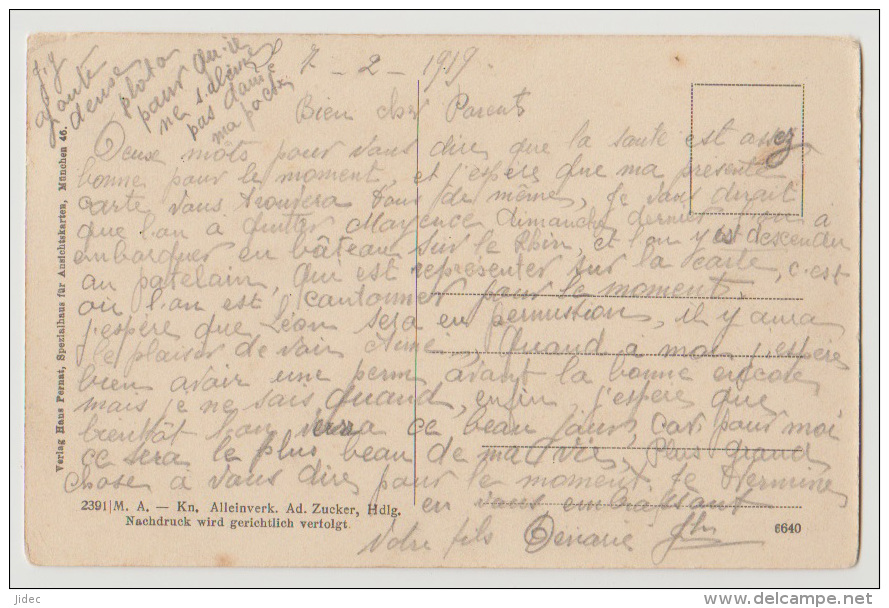 7 - 2 - 1919.
j'y
ajoute
deuse
photo
pour qui
ne s'abime
pas dans
ma poche
Bien cher Parents
Deuse môts pour vous dire que la santé est assez
bonne pour le moment, et j'espère que ma présente
carte vous trouvera tous de même, Je vous dirait
que l'on a quitter Mayence dimanche dernier l'on a
embarquer en bâteau sur le Rhin, et l'on y est descendu
au patelain, qui est représenter sur la carte, c'est
où l'on est l'cantonner pour le moment.
j'espère que Léon sera en permission, il y aura
le plaisir de voir Aimé, Quand à moi j'espère
bien avoir une perm avant la bonne encore
mais je ne sais quand, enfin j'espère que
bientôt l'on verra ce beau jour, car pour moi
ce sera le plus beau de ma vie, Plus grand
chose à vous dire pour le moment. Je termine
en vous embrassant
Votre fils
Verlag Hans Pernat, Spezialhaus für Ansichtskarten, München 46.
2391 M. A. — Kn. Alleinverk. Ad. Zucker, Hdlg.
Nachdruck wird gerichtlich verfolgt.
6640
© Jidec
www.delcampe.net